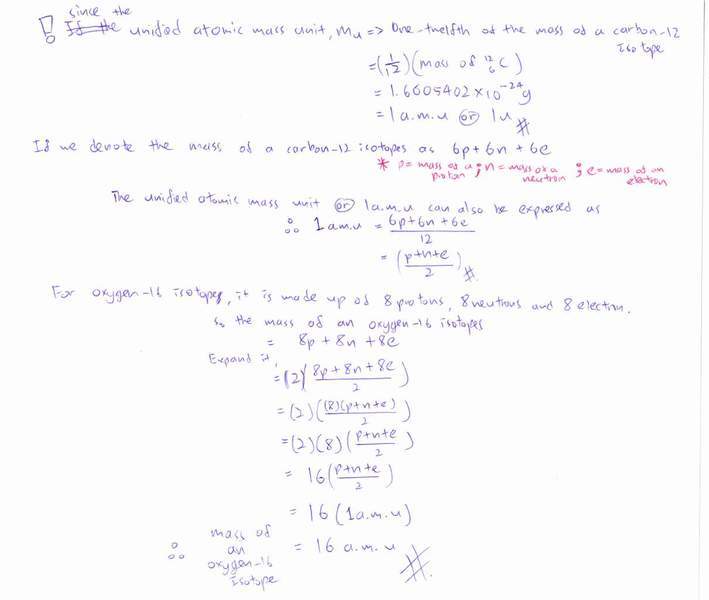 since the
! If the unified atomic mass unit, Mu => One-twelfth of the mass of a carbon-12 isotope
= (1/12) (mass of ¹²₆C)
= 1.6605402 × 10⁻²⁴g
= 1 a.m.u or 1u #
If we denote the mass of a carbon-12 isotopes as 6p + 6n + 6e
* p = mass of a proton ; n = mass of a neutron ; e = mass of an electron
The unified atomic mass unit or 1a.m.u can also be expressed as
∴ 1 a.m.u = (6p + 6n + 6e)/12
= (p+n+e / 2) #
For oxygen-16 isotopes, it is made up of 8 protons, 8 neutrons and 8 electron.
so the mass of an oxygen-16 isotopes
= 8p + 8n + 8e
Expand it,
= (2)(8p + 8n + 8e / 2)
= (2)((8)(p+n+e) / 2)
= (2)(8)(p+n+e / 2)
= 16(p+n+e / 2)
= 16 (1a.m.u)
∴ mass of an oxygen-16 isotope = 16 a.m.u #